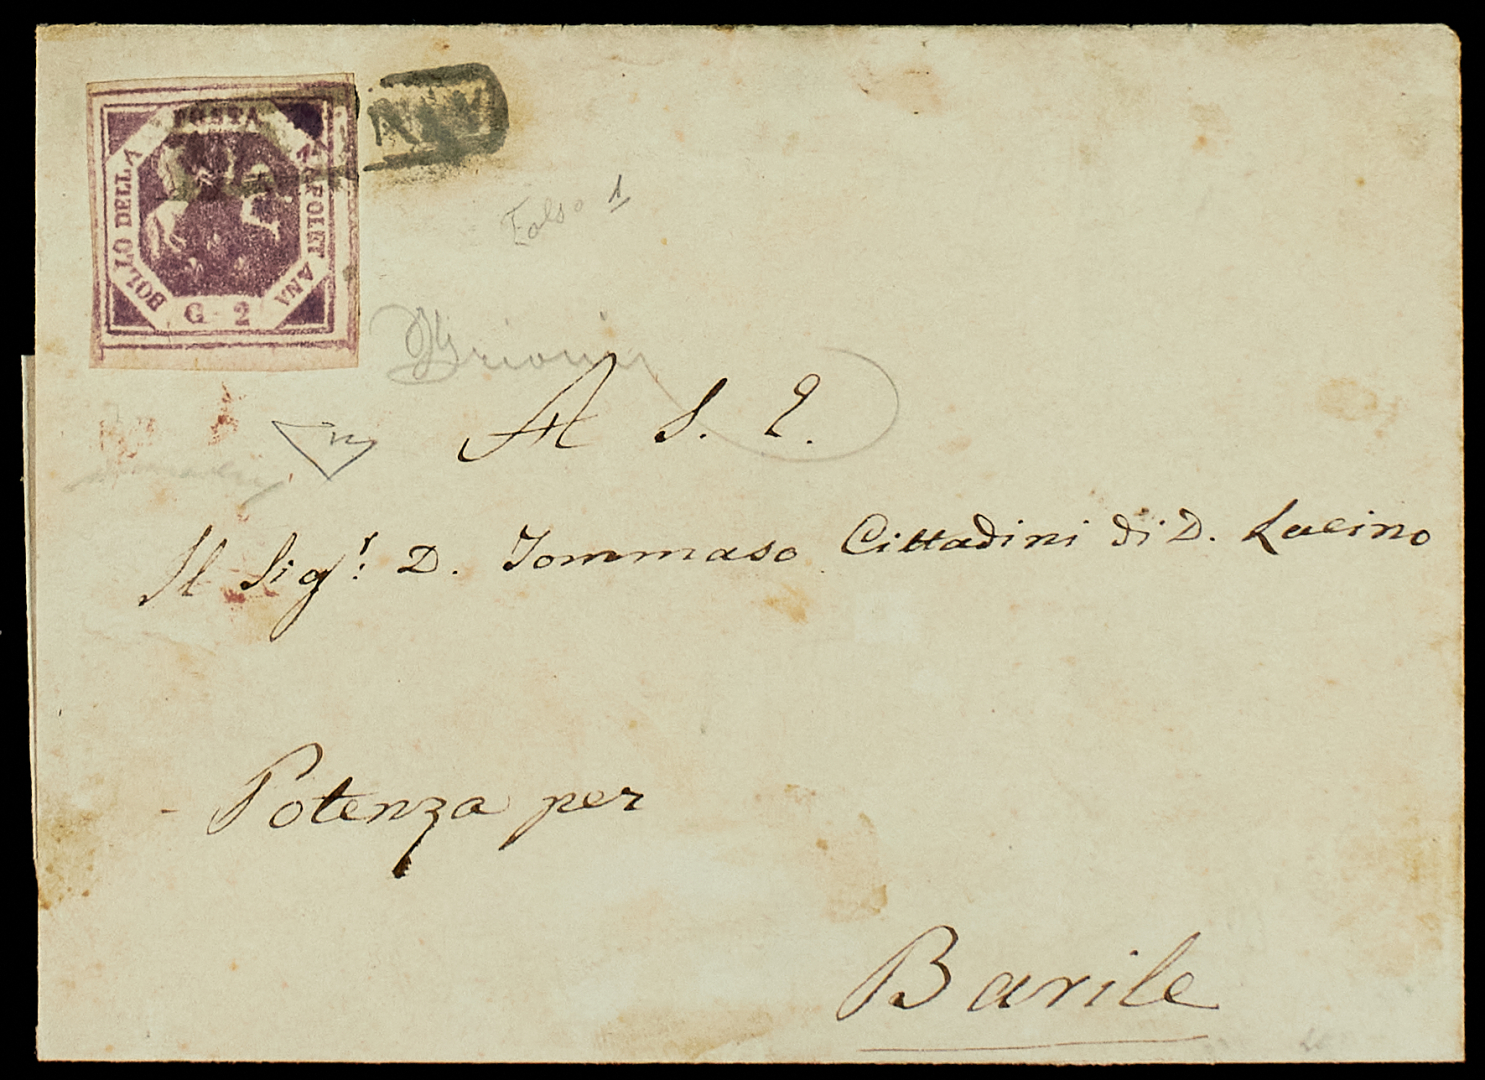 BOLLO DELLA
POSTA
NAPOLETANA
G. 2
Falso 1
A S. E.
Il Sigr: D. Tommaso Cittadini di D. Lucino
Potenza per
Barile